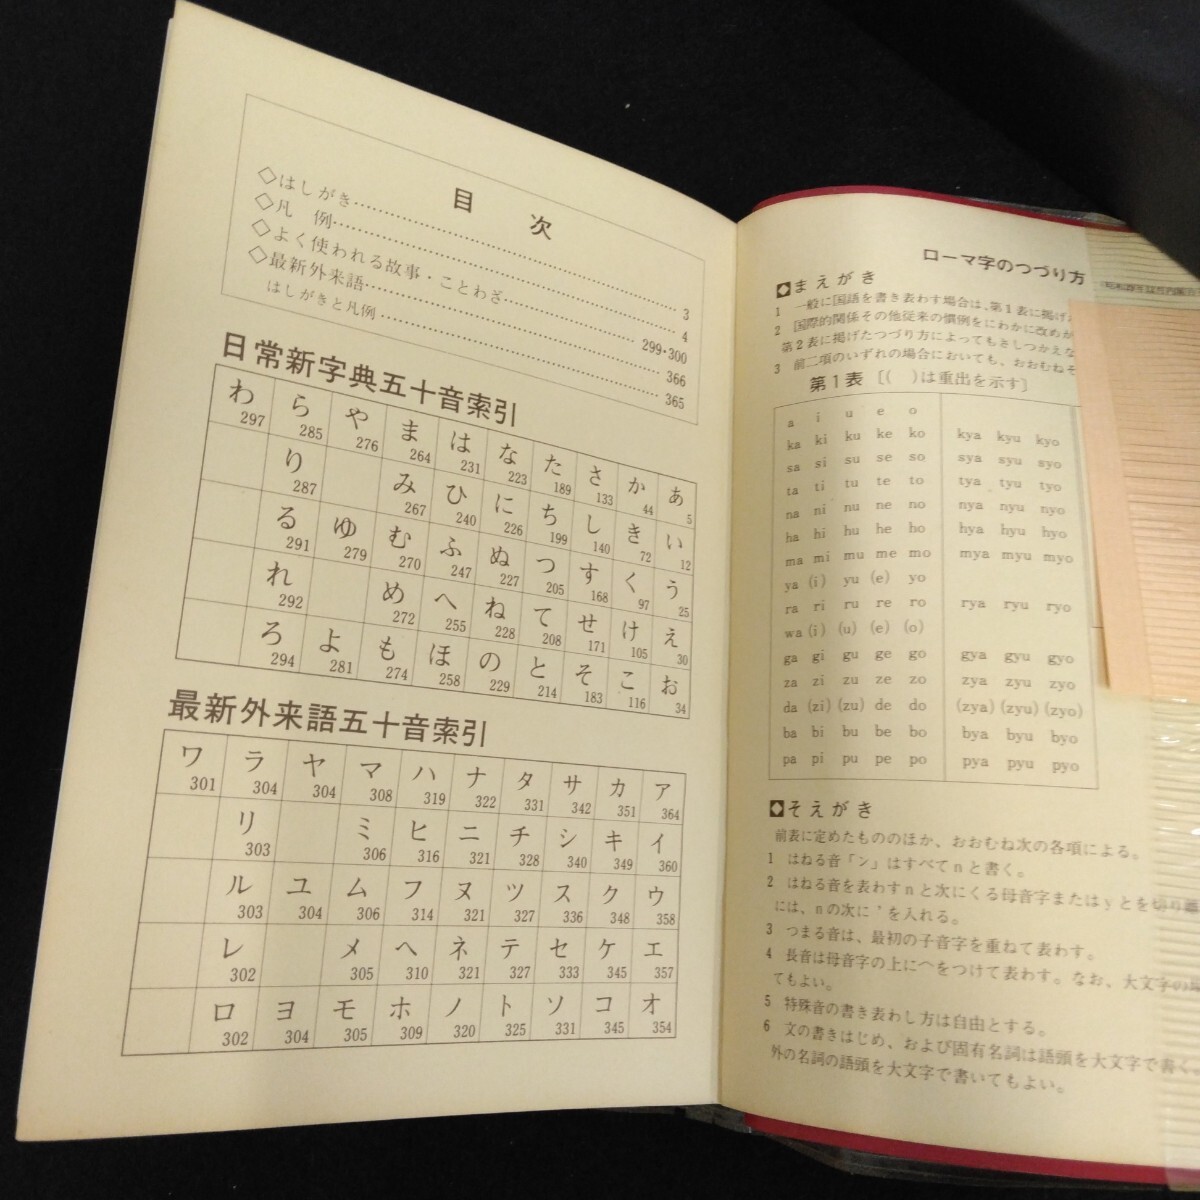 目 次
◇はしがき……3
◇凡 例……4
◇よく使われる故事・ことわざ……299・300
◇最新外来語……366
はしがきと凡例……365
日常新字典五十音索引
わ297 ら285 や276 ま264 は231 な223 た189 さ133 か44 あ5
り287 み267 ひ240 に226 ち199 し140 き72 い12
る291 ゆ279 む270 ふ247 ぬ227 つ205 す168 く97 う25
れ292 め272 へ255 ね228 て208 せ171 け105 え30
ろ294 よ281 も274 ほ258 の229 と214 そ183 こ116 お34
最新外来語五十音索引
ワ301 ラ304 ヤ304 マ308 ハ319 ナ322 タ331 サ342 カ351 ア364
リ303 ミ306 ヒ316 ニ321 チ328 シ340 キ349 イ360
ル303 ユ304 ム306 フ314 ヌ321 ツ327 ス336 ク348 ウ358
レ302 メ305 ヘ310 ネ321 テ327 セ333 ケ345 エ357
ロ302 ヨ304 モ305 ホ309 ノ320 ト325 ソ331 コ345 オ354
ローマ字のつづり方
◆まえがき
1 一般に国語を書き表わす場合は、第1表に掲げ
2 国際的関係その他従来の慣例をにわかに改めが
第2表に掲げたつづり方によってもさしつかえな
3 前二項のいずれの場合においても、おおむねそ
第1表〔( )は重出を示す〕
a i u e o
ka ki ku ke ko kya kyu kyo
sa si su se so sya syu syo
ta ti tu te to tya tyu tyo
na ni nu ne no nya nyu nyo
ha hi hu he ho hya hyu hyo
ma mi mu me mo mya myu myo
ya (i) yu (e) yo
ra ri ru re ro rya ryu ryo
wa (i) (u) (e) (o)
ga gi gu ge go gya gyu gyo
za zi zu ze zo zya zyu zyo
da (zi) (zu) de do (zya) (zyu) (zyo)
ba bi bu be bo bya byu byo
pa pi pu pe po pya pyu pyo
◆そえがき
前表に定めたもののほか、おおむね次の各項による。
1 はねる音「ン」はすべてnと書く。
2 はねる音を表わすnと次にくる母音字またはyとを切り離
には、nの次に'を入れる。
3 つまる音は、最初の子音字を重ねて表わす。
4 長音は母音字の上に^をつけて表わす。なお、大文字の場
てもよい。
5 特殊音の書き表わし方は自由とする。
6 文の書きはじめ、および固有名詞は語頭を大文字で書く。
外の名詞の語頭を大文字で書いてもよい。